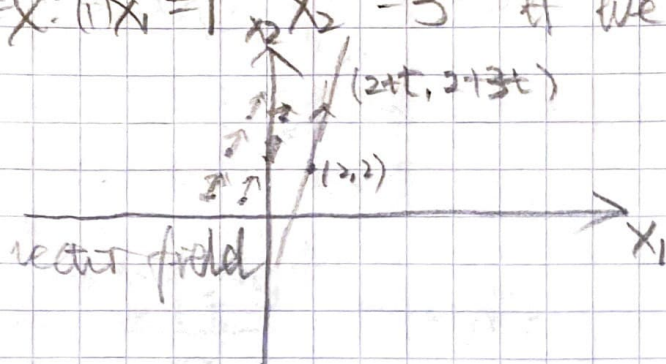 x. (1) x₁ = 1 x₂ = 3 If we
x₂
(2+t, 2+3t)
(2,2)
x₁
vector field